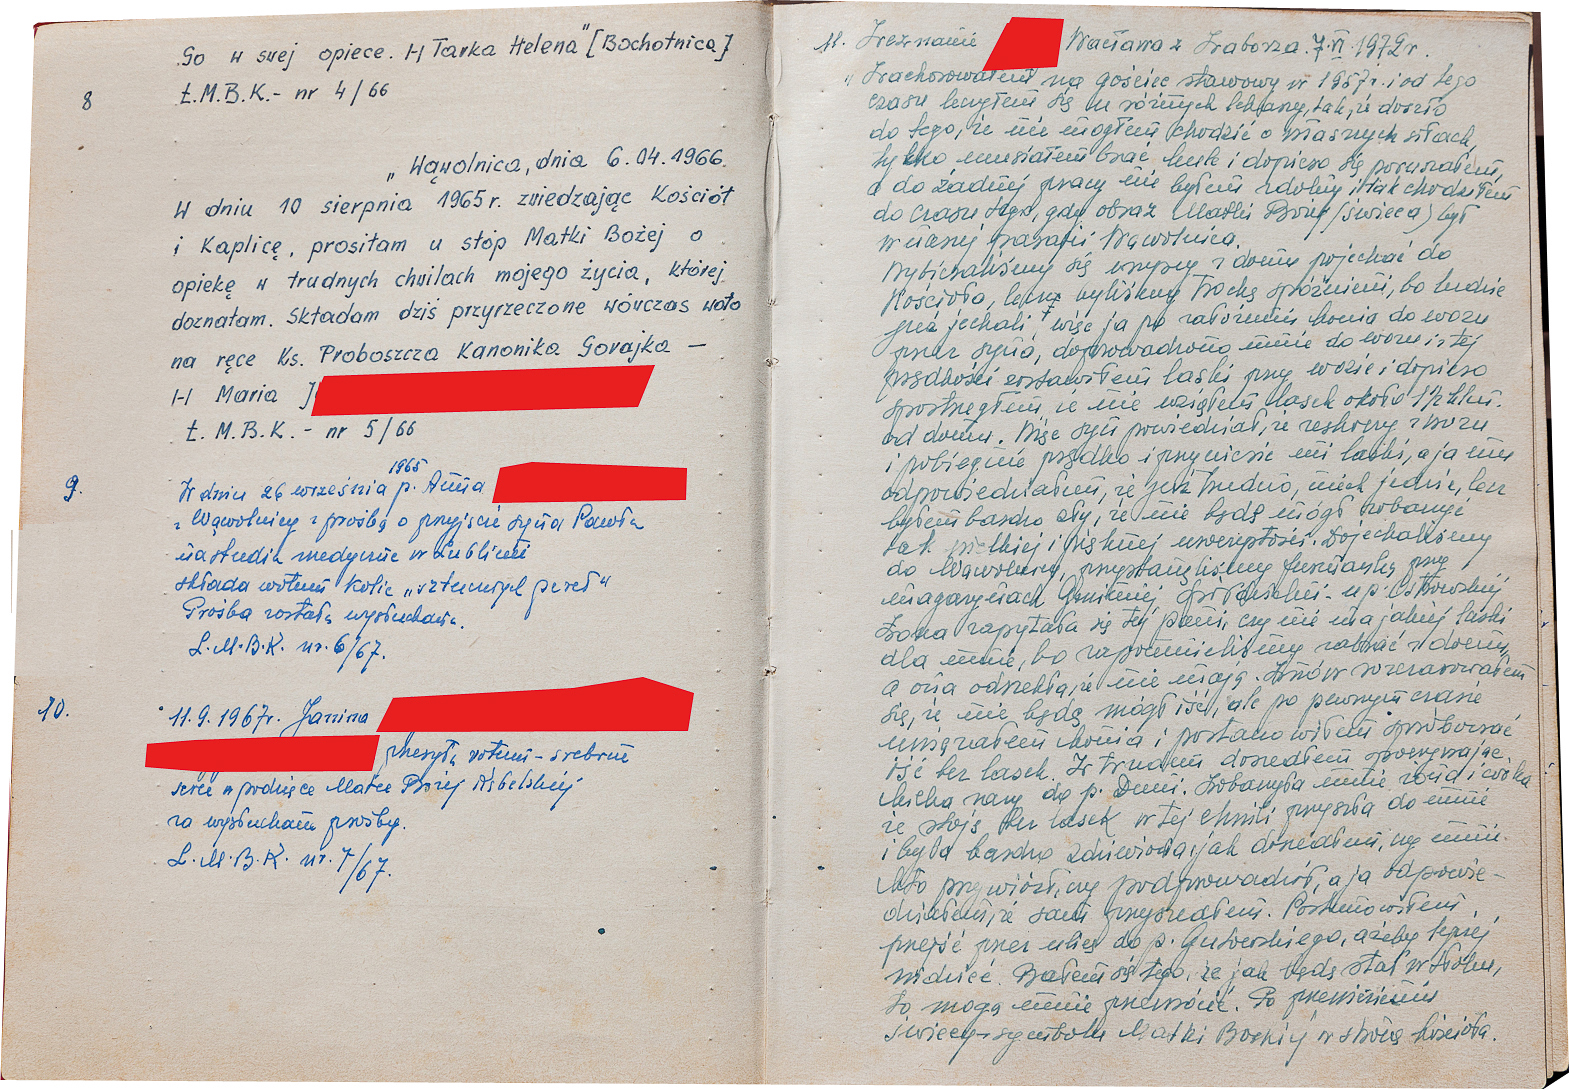 Go w swej opiece. H Tarka Helena" [Bochotnica]
8
Ł.M.B.K.- nr 4/66
„Wąwolnica, dnia 6.04.1966.
W dniu 10 sierpnia 1965r. zwiedzając Kościół
i Kaplicę, prosiłam u stóp Matki Bożej o
opiekę w trudnych chwilach mojego życia, której
doznałam. Składam dziś przyrzeczone wówczas woto
na ręce Ks. Proboszcza Kanonika Gorajka —
H Maria J
Ł.M.B.K.- nr 5/66
1965
9. W dniu 26 września p. Anna
z Wąwolnicy z prośbą o przyjście syna Pawła
na studia medyczne w Lublinie
składa wotum kolie „sztucznych pereł"
Prośba została wysłuchana.
Ł.M.B.K. nr. 6/67.
10. 11.9.1967r. Janina
przesyła wotum - srebrne
serce w podzięce Matce Bożej Kębelskiej
za wysłuchanie prośby.
Ł.M.B.K. nr. 7/67.
11. Zeznanie Wacława z Zaborza. 7.VI.1972r.
„Zachorowałem na gościec stawowy w 1957r. i od tego
czasu leczyłem się u różnych lekarzy, tak, że doszło
do tego, że nie mogłem chodzić o własnych siłach,
tylko musiałem brać kule i dopiero się poruszałem,
a do żadnej pracy nie byłem zdolny i tak chodziłem
do czasu tego, gdy obraz Matki Bożej (świeca) był
w naszej parafii Wąwolnica.
Wybieraliśmy się wszyscy z domu pojechać do
Kościoła, lecz byliśmy trochę spóźnieni, bo ludzie
już jechali, więc ja po założeniu konia do wozu
przez syna, doprowadzono mnie do wozu i z tej
prędkości zostawiłem laski przy wozie i dopiero
spostrzegłem, że nie wziąłem lasek około 1/2 klm.
od domu. Więc syn powiedział, że zeskoczy z wozu
i pobiegnie prędko i przyniesie mi laski, a ja mu
odpowiedziałem, że już trudno, niech jedzie, lecz
byłem bardzo zły, że nie będę mógł zobaczyć
tak wielkiej i pięknej uroczystości. Dojechaliśmy
do Wąwolnicy, przystanęliśmy furmanką przy
magazynach Gminnej Spółdzielni - u p. Ostrowskiej
Żona zapytała się tej pani, czy nie ma jakiej laski
dla mnie, bo zapomnieliśmy zabrać z domu,
a ona odrzekła, że nie mają. Znów rozczarowałem
się, że nie będę mógł iść, ale po pewnym czasie
uwiązałem konia i postanowiłem spróbować
iść bez lasek. Z trudem doszedłem spoczywając
kilka razy do p. Duni. Zobaczyła mnie żona i córka
że stoję bez lasek w tej chwili przyszła do mnie
i była bardzo zdziwiona jak doszedłem, czy mnie
kto przywiózł, czy podprowadził, a ja odpowie-
działem, że sam przyszedłem. Postanowiłem
przejść przez ulicę do p. Guzowskiego, ażeby lepiej
widzieć. Bałem się tego, że jak będę stał w tłoku,
to mogą mnie przewrócić. Po przeniesieniu
świecy-symbolu Matki Boskiej w stronę kościoła.